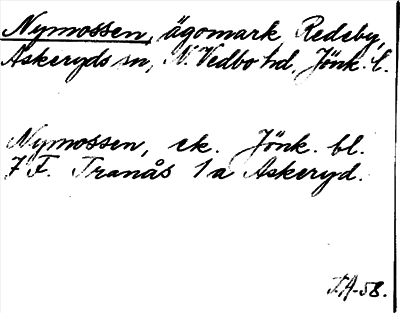 Nymossen, ägomark Redeby,
Askeryds sn, N. Vedbo hd, Jönk. l.
Nymossen, ek. Jönk. bl.
7 F. Tranås 1 a Askeryd.
J.A-58.